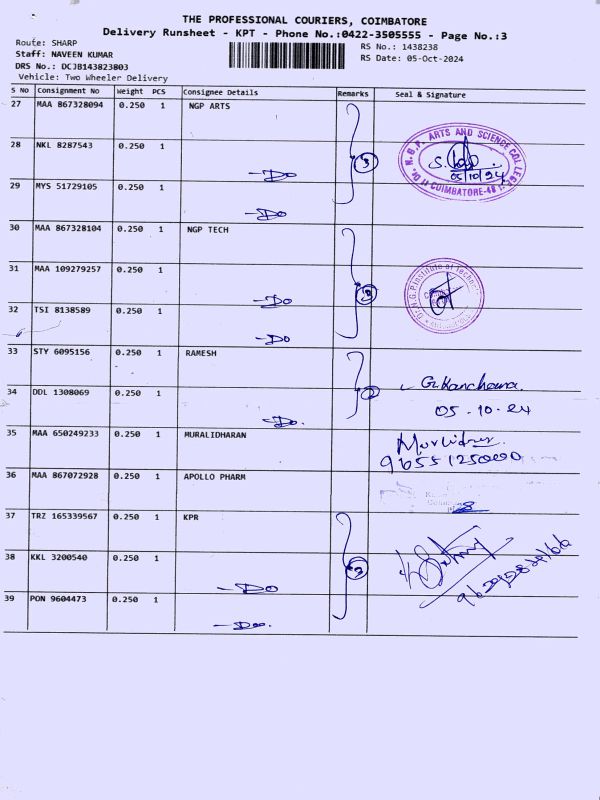 THE PROFESSIONAL COURIERS, COIMBATORE
Delivery Runsheet - KPT - Phone No.:0422-3505555 - Page No.:3
Route: SHARP
RS No.: 1438238
Staff: NAVEEN KUMAR
RS Date: 05-Oct-2024
DRS No.: DCJB143823803
Vehicle: Two Wheeler Delivery
S No Consignment No Weight PCS Consignee Details Remarks Seal & Signature
27 MAA 867328094 0.250 1 NGP ARTS
28 NKL 8287543 0.250 1
-Do
3
Dr. N.G.P. ARTS AND SCIENCE COLLEGE
05/10/24
COIMBATORE-48
29 MYS 51729105 0.250 1
-Do
30 MAA 867328104 0.250 1 NGP TECH
31 MAA 109279257 0.250 1
-Do
3
Dr. N.G.P. Institute of Technology
32 TSI 8138589 0.250 1
-Do
33 STY 6095156 0.250 1 RAMESH
G. Kanchana
34 DDL 1308069 0.250 1
-Do.
2
05-10-24
35 MAA 650249233 0.250 1 MURALIDHARAN
9655125000
36 MAA 867072928 0.250 1 APOLLO PHARM
37 TRZ 165339567 0.250 1 KPR
38 KKL 3200540 0.250 1
-Do
39 PON 9604473 0.250 1
-Do.